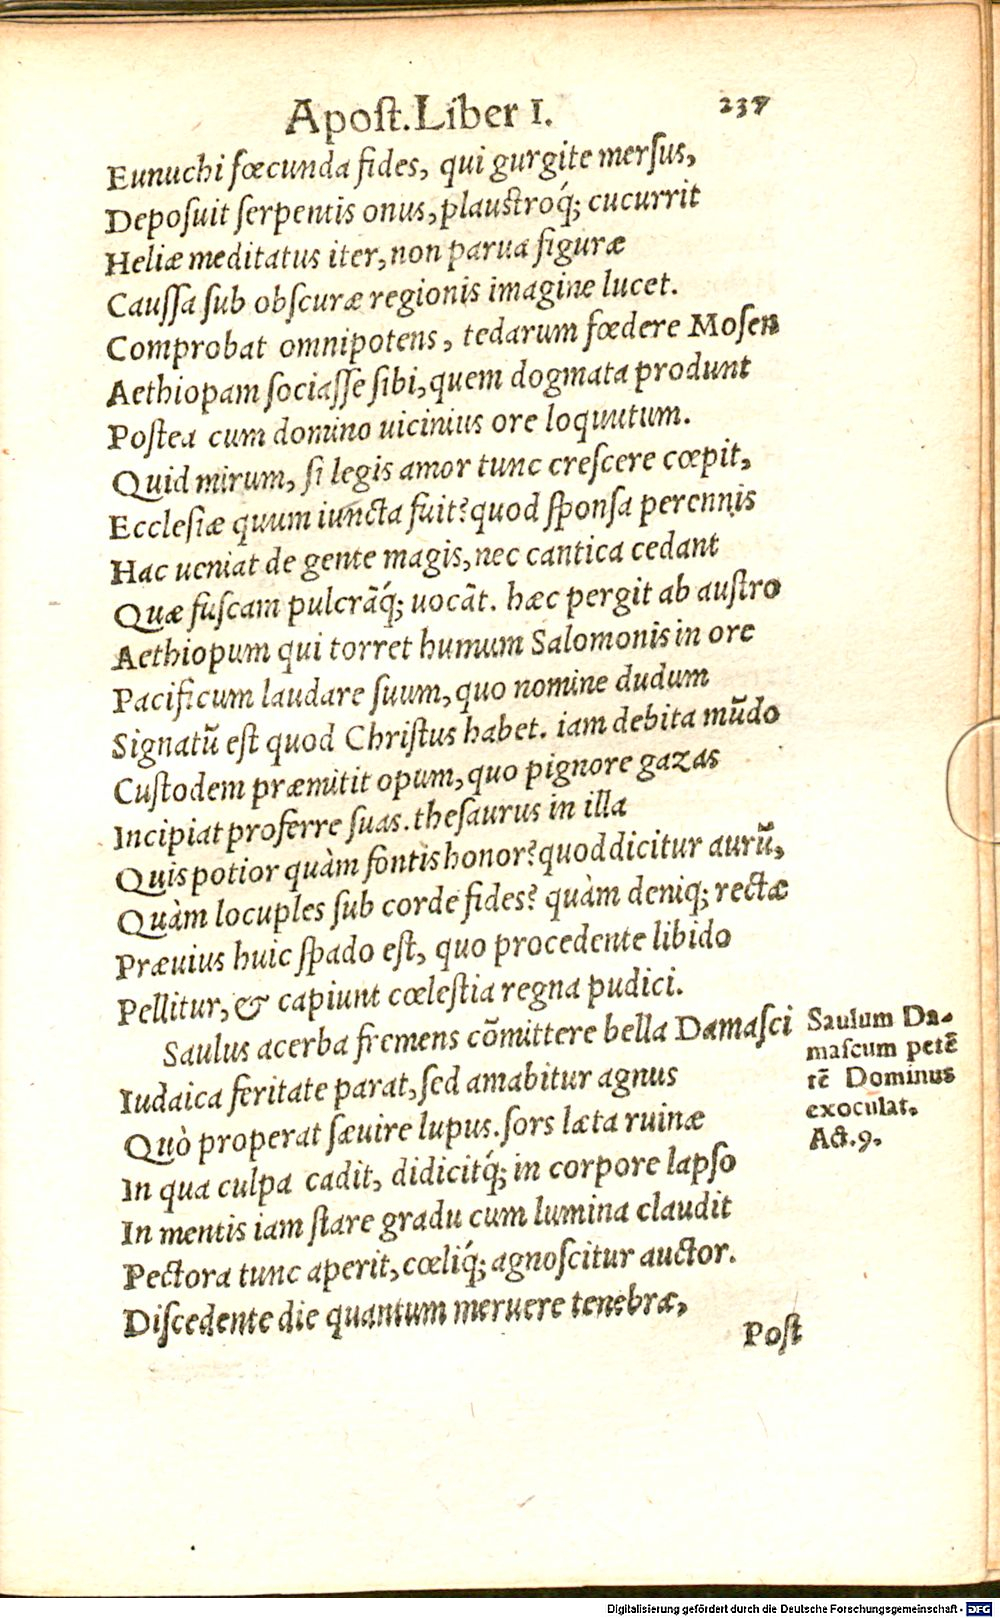 Apost. Liber I. 237
Eunuchi fœcunda fides, qui gurgite mersus,
Deposuit serpentis onus, plaustroq́; cucurrit
Heliæ meditatus iter, non parua figuræ
Caussa sub obscuræ regionis imagine lucet.
Comprobat omnipotens, tedarum fœdere Mosen
Aethiopam sociasse sibi, quem dogmata produnt
Postea cum domino uicinius ore loquutum.
Quid mirum, si legis amor tunc crescere cœpit,
Ecclesiæ quum iuncta fuit? quod sponsa perennis
Hac ueniat de gente magis, nec cantica cedant
Quæ fuscam pulcrãq́; uocãt. hæc pergit ab austro
Aethiopum qui torret humum Salomonis in ore
Pacificum laudare suum, quo nomine dudum
Signatũ est quod Christus habet. iam debita mũdo
Custodem præmittit opum, quo pignore gazas
Incipiat proferre suas. thesaurus in illa
Quis potior quàm fontis honor? quod dicitur aurũ,
Quàm locuples sub corde fides? quàm deniq; rectæ
Præuius huic spado est, quo procedente libido
Pellitur, & capiunt cœlestia regna pudici.
Saulus acerba fremens cõmittere bella Damasci
Iudaica feritate parat, sed amabitur agnus
Quò properat sæuire lupus. sors læta ruinæ
In qua culpa cadit, didicitq́; in corpore lapso
In mentis iam stare gradu cum lumina claudit
Pectora tunc aperit, cœliq́; agnoscitur auctor.
Discedente die quantum meruere tenebræ,
Post
Saulum Da-
mascum petẽ
tẽ Dominus
exoculat.
Act. 9.
Digitalisierung gefördert durch die Deutsche Forschungsgemeinschaft - DFG